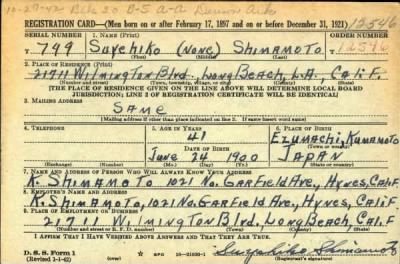 REGISTRATION CARD—(Men born on or after February 17, 1897 and on or before December 31, 1921) 12546
SERIAL NUMBER 1. NAME (Print) ORDER NUMBER
799 Suyehiko (NONE) SHIMAMOTO 12546
(First) (Middle) (Last)
2. PLACE OF RESIDENCE (Print)
21711 WILMINGTON BLVD., LONG BEACH, L.A., CALIF.
(Number and street) (Town, township, village, or city) (County) (State)
[THE PLACE OF RESIDENCE GIVEN ON THE LINE ABOVE WILL DETERMINE LOCAL BOARD
JURISDICTION; LINE 2 OF REGISTRATION CERTIFICATE WILL BE IDENTICAL]
3. MAILING ADDRESS
SAME
[Mailing address if other than place indicated on line 2. If same insert word same]
4. TELEPHONE 5. AGE IN YEARS 6. PLACE OF BIRTH
41 EZUMACHI, KUMAMOTO
DATE OF BIRTH (Town or county)
JUNE 24 1900 JAPAN
(Exchange) (Number) (Mo.) (Day) (Yr.) (State or country)
7. NAME AND ADDRESS OF PERSON WHO WILL ALWAYS KNOW YOUR ADDRESS
K. SHIMAMOTO 1021 NO. GARFIELD AVE., HYNES, CALIF.
8. EMPLOYER'S NAME AND ADDRESS
K. SHIMAMOTO, 1021 NO. GARFIELD AVE., HYNES, CALIF.
9. PLACE OF EMPLOYMENT OR BUSINESS
21711 WILMINGTON BLVD., LONG BEACH, CALIF
(Number and street or R. F. D. number) (Town) (County) (State)
I AFFIRM THAT I HAVE VERIFIED ABOVE ANSWERS AND THAT THEY ARE TRUE.
D. S. S. Form 1
(Revised 1-1-42) (over) GPO Suyehiko Shimamoto
(Registrant's signature)